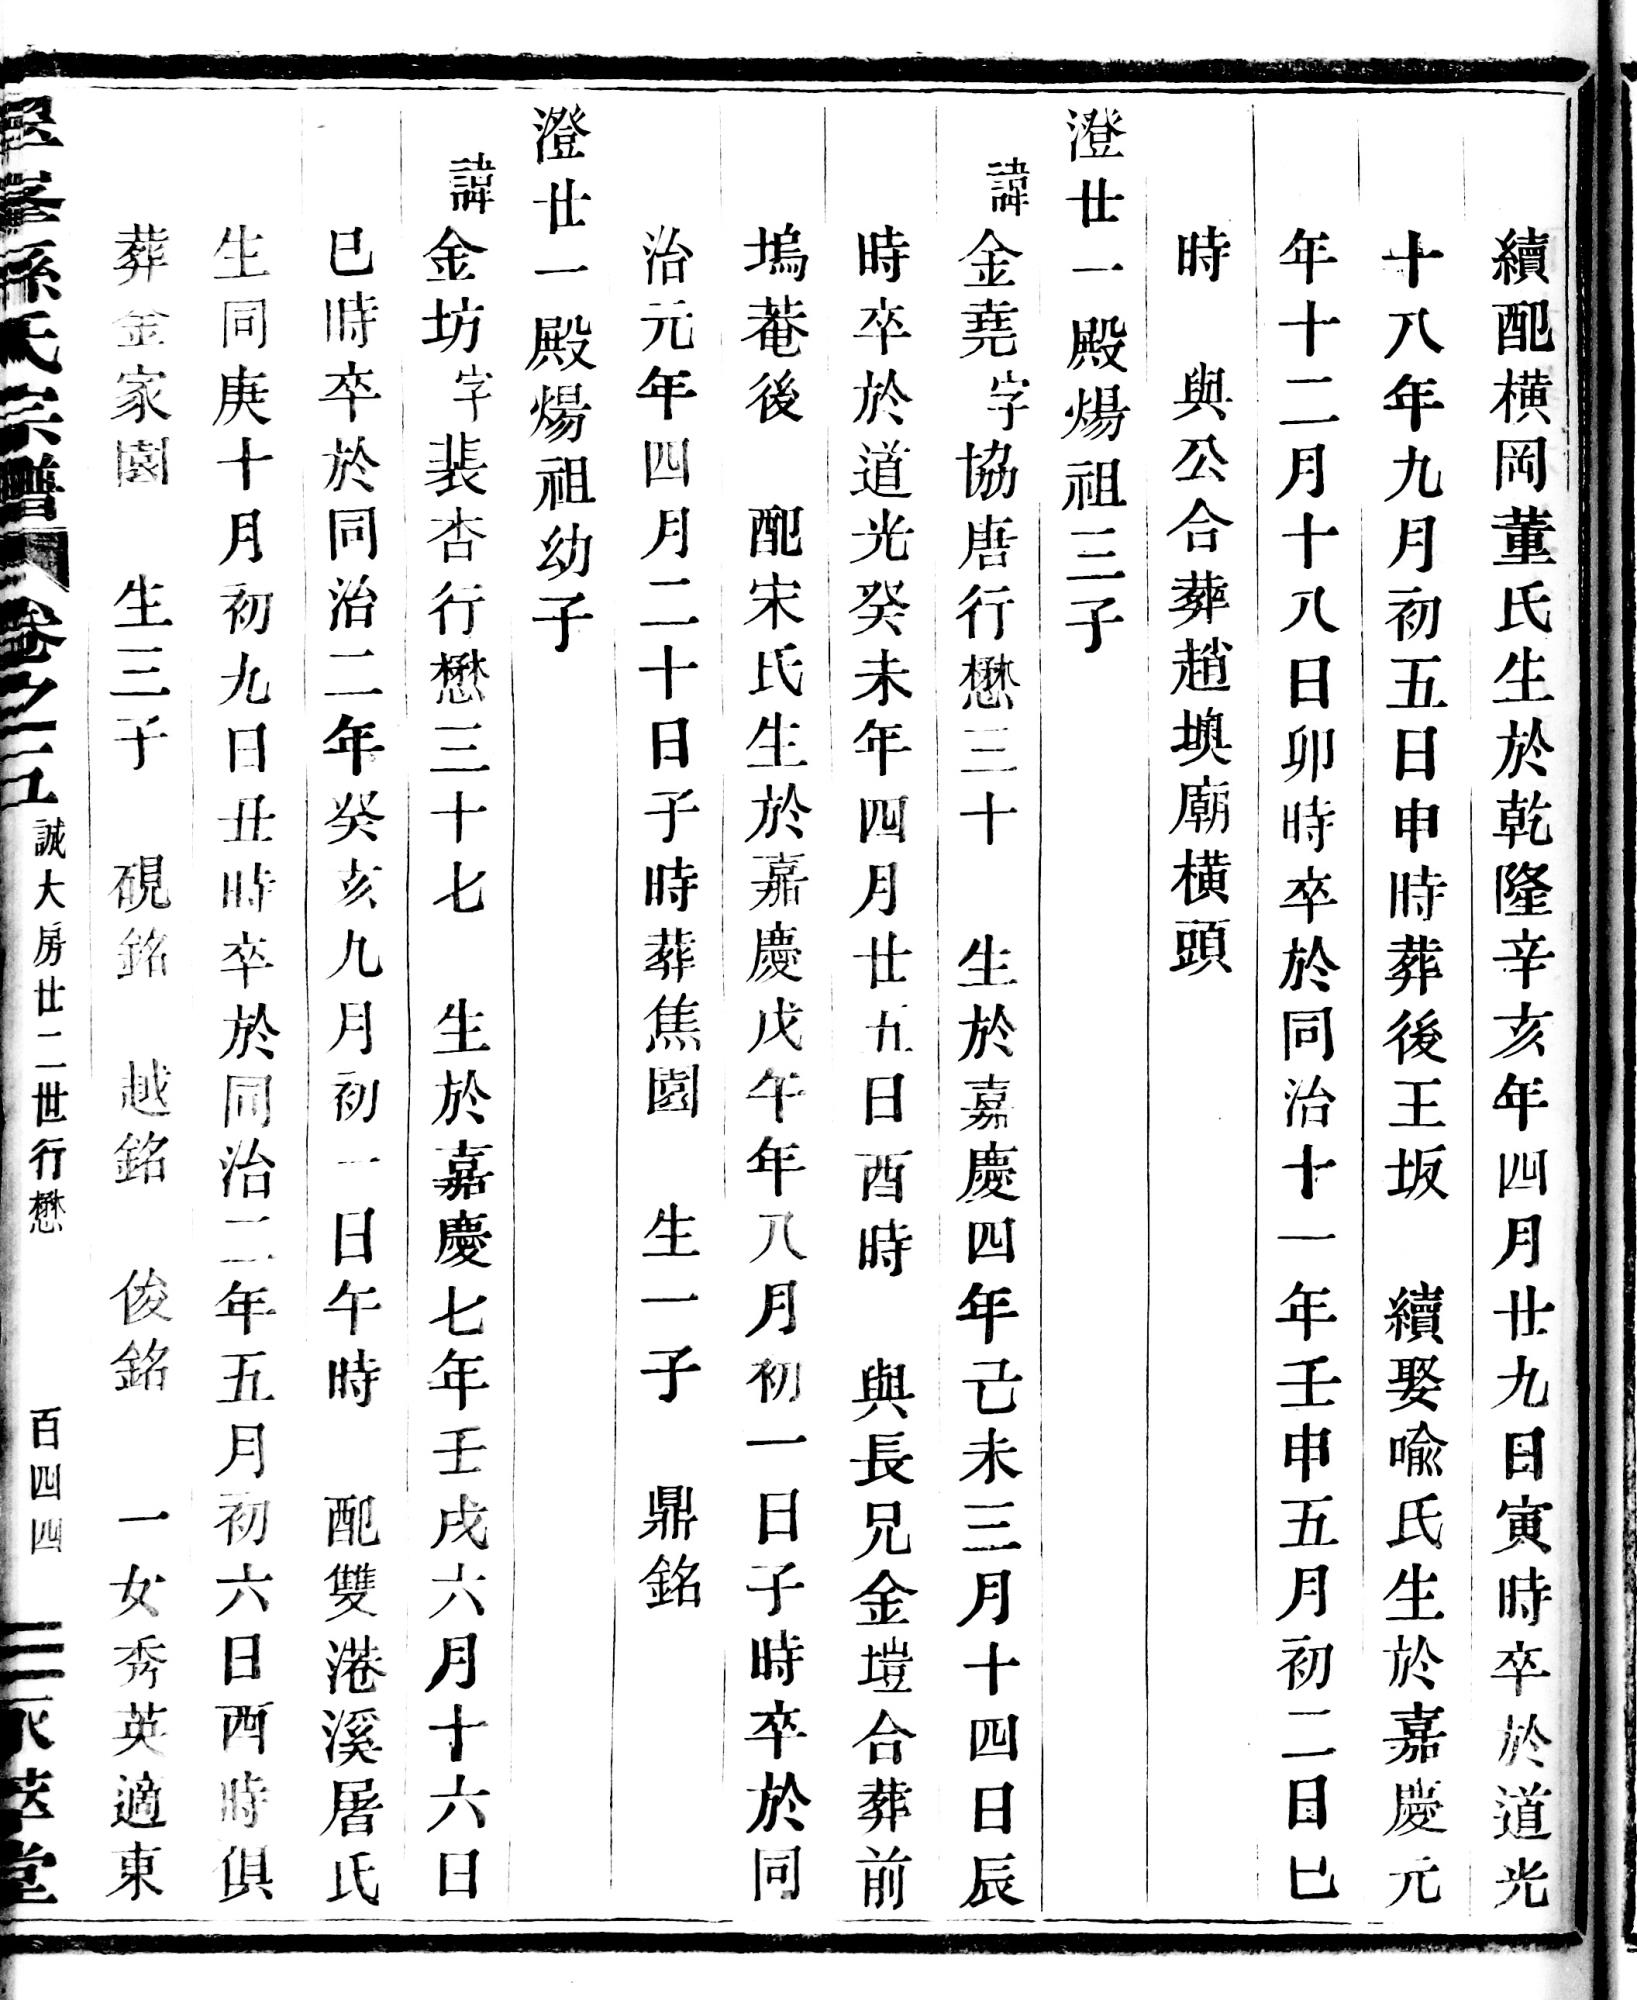 續配橫岡董氏生於乾隆辛亥年四月廿九日寅時卒於道光
十八年九月初五日申時葬後王坂　續娶喩氏生於嘉慶元
年十二月十八日卯時卒於同治十一年壬申五月初二日巳
時　與公合葬趙墺廟橫頭
澄廿一殿煬祖三子
諱金堯字協唐行懋三十　生於嘉慶四年己未三月十四日辰
時卒於道光癸未年四月廿五日酉時　與長兄金塏合葬前
塢菴後　配宋氏生於嘉慶戊午年八月初一日子時卒於同
治元年四月二十日子時葬焦園　生一子　鼎銘
澄廿一殿煬祖幼子
諱金坊字裴杏行懋三十七　生於嘉慶七年壬戌六月十六日
巳時卒於同治二年癸亥九月初一日午時　配雙港溪屠氏
生同庚十月初九日丑時卒於同治二年五月初六日酉時俱
葬金家園　生三子　硯銘　越銘　俊銘　一女秀英適東
孫氏宗譜　卷之二五　誠大房廿二世行懋　百四四　萃堂